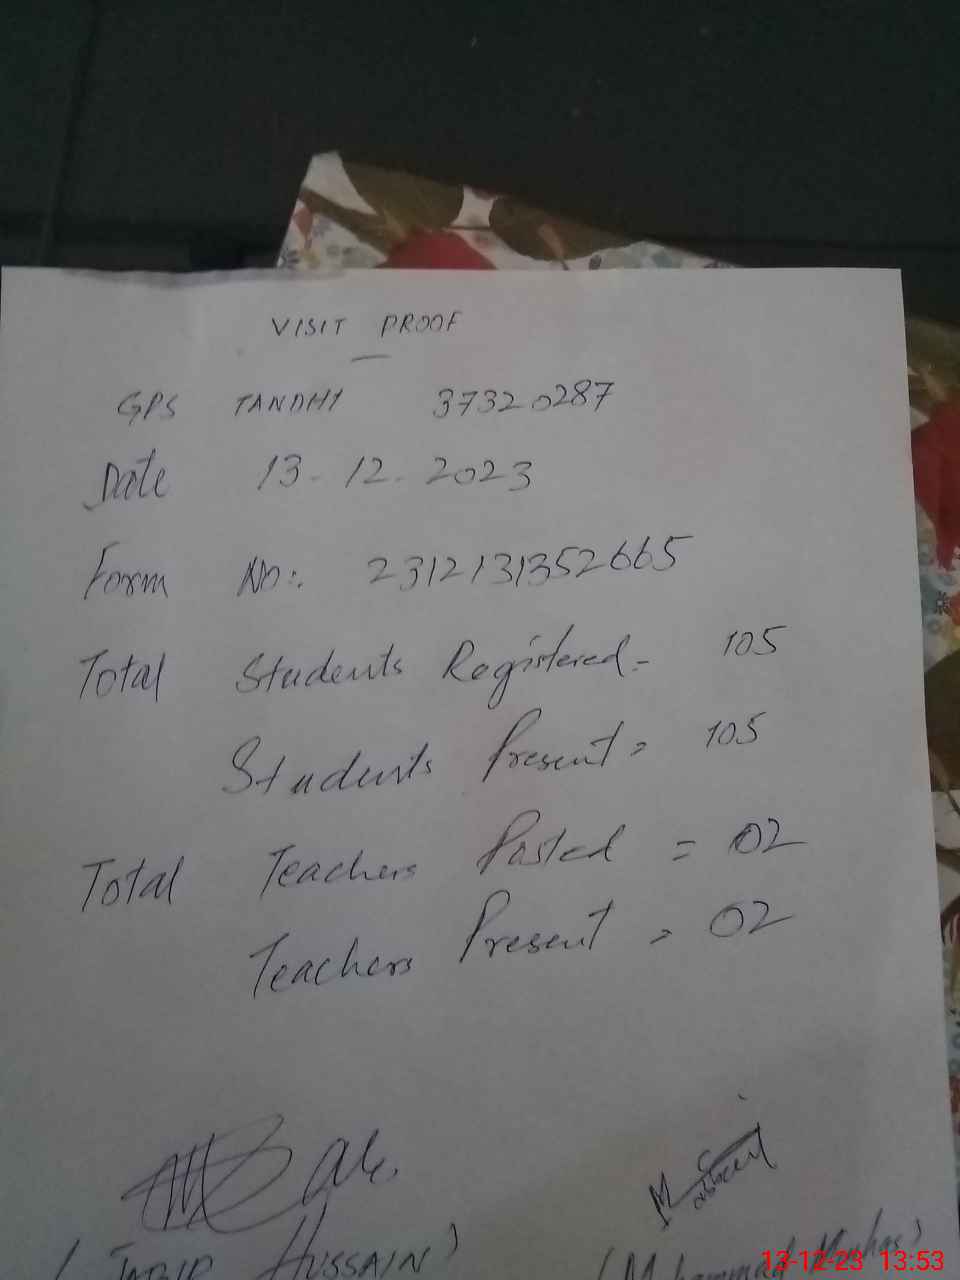 VISIT PROOF
GPS TANDHI 37320287
Date 13-12-2023
Form No:. 2312131352665
Total Students Registered- 105
Students Present = 105
Total Teachers Posted = 02
Teachers Present = 02
HUSSAIN)
(Muhammad
13-12-23 13:53